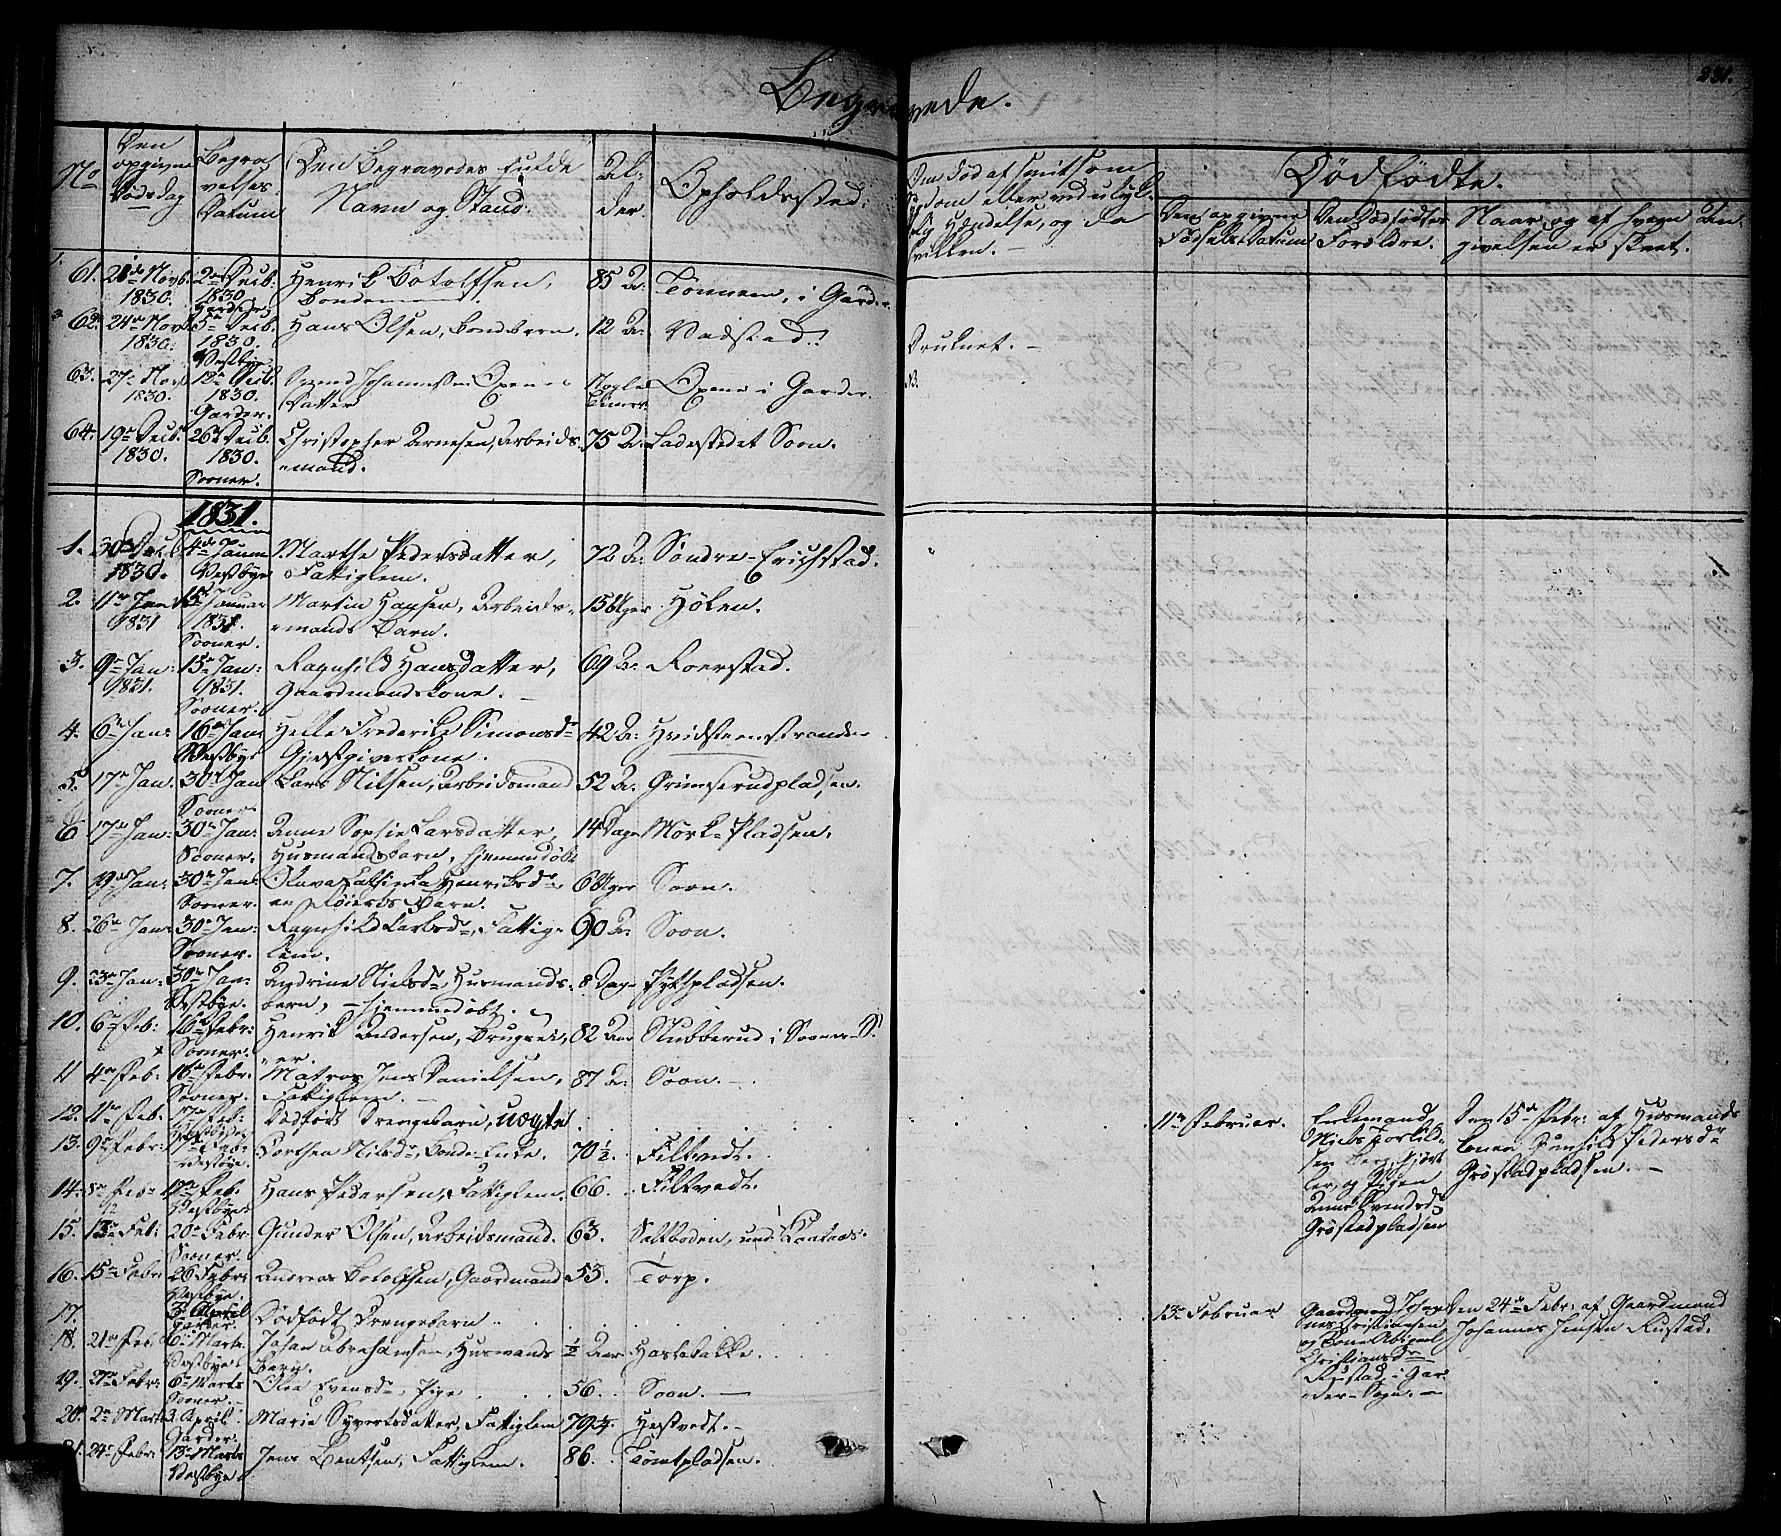 231.
Begravede.
No
Den opgivne Dødsdag
Begravelses Datum
Den Begravedes fulde Navn og Stand.
Alder.
Opholdssted.
Om død af smitsom Sygdom eller ved ulykkelig Hændelse, og da hvilken. —
Dødfødte.
Den opgivne Fødsels Datum
Den Dødfødtes Forældre.
Naar og af hvem Angivelsen er skeet.
61. Novb. 1830. 2de Decb. 1830 Henrik Botolfsen, Bondemand. 85 A. i Garder
62. 24de Novb 1830. 5te Decb. 1830. Vestbye Hans Olsen, Bondebarn. 12 A. Vadstad. Druknet. —
63. 27de Novb 1830. 12te Decb. 1830. Garder. Svend Johannesen Datter Nogle Timer Opene i Garder.
64. 19de Decb. 1830. 26de Decb. 1830. Sooner. Christopher Arnesen, Arbeidsmand. 75 A. Ladestedet Soon.
1831.
1. 30te Decb 1830. 4de Januar Vestbye Marthe Pedersdatter, Fattiglem. 72 A. Søndre-Erichstad.
2. 11te Jan 1831 15 Januar 1831. Sooner. Martin Hansen, Arbeidsmands Barn. 15 Uger Hølen.
3. 9de Jan: 1831. 15de Jan: 1831. Sooner. Ragnhild Hansdatter, Gaardmandskone. — 69 A. Roerstad.
4. 6te Jan: 16de Jan: Vestbye Helle Frederike Simonsdr Gjestgiverkone. 42 A. Hvidsteenstranden
5. 17de Jan: 30te Jan Sooner. Lars Nilsen, Arbeidsmand 52 A. Grimserudpladsen.
6 17de Jan: 30te Jan: Sooner. Anne Sophie Larsdatter, Husmandsbarn, hjemmedøbt 14 Dage Mørk-Pladsen.
7. 19de Jan: 30te Jan: Sooner. Cathinka Henriksdr Barn. 6 Uger Soon.
8. 26de Jan: 30te Jan: Sooner. Ragnhild Larsdr, Fattiglem. 90 A. Soon.
9. 23de Jan: 30te Jan: Vestbye. Andrine Nielsdr, Husmandsbarn, — hjemmedøbt. 8 Dage Pytpladsen.
10. 6te Feb: 16de Febr: Sooner. Henrik Andersen, Bruger 82 Aar Stubberud i Sooner S.
11 4de Feb: 16de Febr: Sooner. Matros Jens Danielsen, Fattiglem. — 87 A. Soon. —
12. 11te Feb. 17de Feb: Dødfødt Drengebarn, uægte. 11te Februar. Enkemand Niels og Pigen Anne Svendsdr Grøstadpladsen Den 15de Febr: af Husmands Konen Gunhild Pedersdr Grøstadpladsen. —
13. 9de Febr: 17de Feb: Vestbye. Dorthea Nilsdr, Bonde-Enke. 70½. Filtvedt.
14. Feb: 17de Feb. Vestbye: Hans Pedersen, Fattiglem. 66. Filtvedt.
15. 13de Feb: 20de Febr Sooner. Gunder Olsen, Arbeidsmand. 63. Saltboden, und:
16. 15de Febr: 26 Febr: Vestbye. Andreas Botolfsen, Gaardmand 53. Torp.
17. 3 April Garder. Dødfødt Drengebarn. 13de Februar Gaardmand Johannes Christiansen og Kone Abigael Christiansdr Rustad i Garder-Sogn. — Den 24de Febr: af Gaardmand Johannes Jensen Rustad.
18. 21de Feb: 6te Marts Vestbye. Johan Abrahamsen, Husmands Barn ½ Aar Haslebakke.
19. 27de Febr: 6te Marts Sooner. Olea Evensdr, Pige 56. Soon. —
20. 2de Marts 3 April Garder. Marie Syvertsdatter, Fattiglem 79¾. Hestvedt. —
21. 24de Febr: 13de Marts Vestbye. Jens Bentsen, Fattiglem. 86. Tomtpladsen.